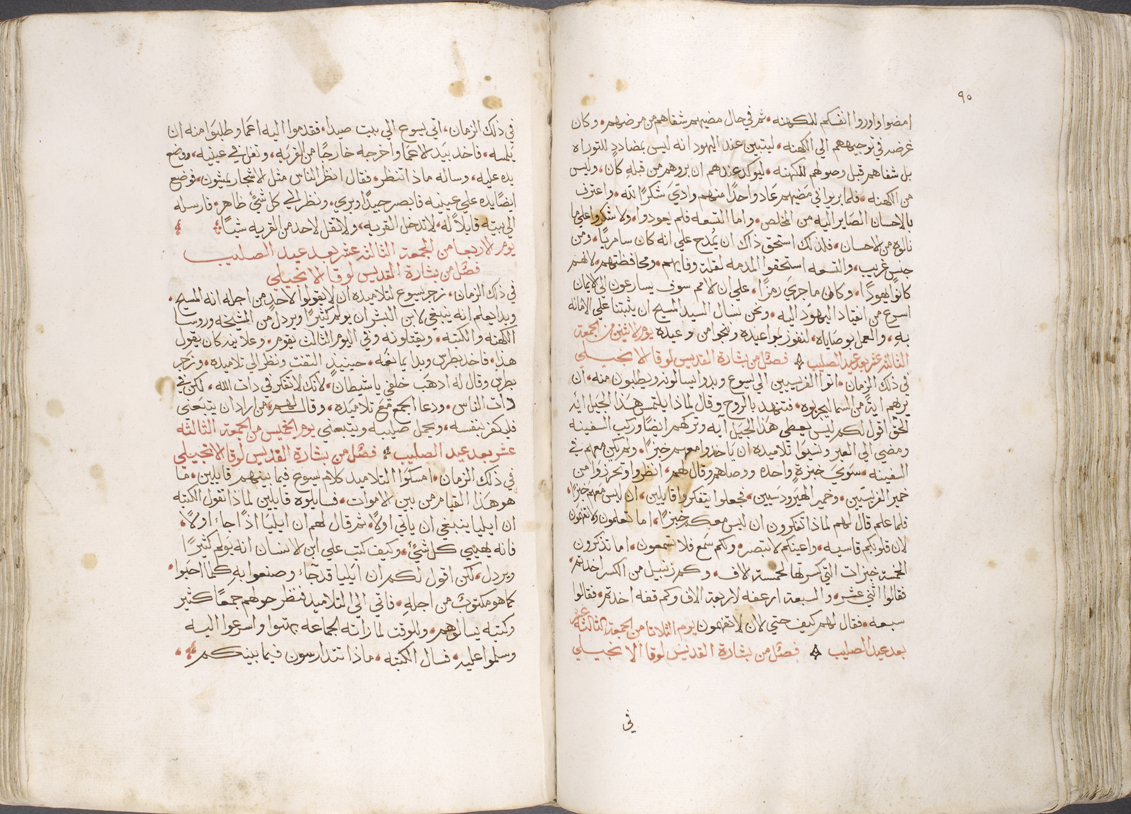 ٩٠
امضوا واوروا انفسكم للكهنه • ثم في حال مضيهم شفاهم من مرضهم • وكان
غرضه في توجيههم الي الكهنه • ليتبين عند اليهود انه ليس بمضاددٍ للتوراه
بل شفاهم قبل وصولهم للكهنه • ليوكد عندهم ان بروهم من قبله كان • وليس
من الكهنه • فلما بروا في مضيهم عاد واحدًا منهم وادي شكرًا لله • واعترف
بالاحسان الصاير اليه من المخلص • واما التسعه فلم يعودوا • ولا شكروا علي ما
نالوه من الاحسان • فلذلك استحق ذاك ان يُمدح علي انه كان سامريًا • ومن
جنس غريب • والتسعه استحقوا المدمه لقلة وفايهم • ومحافظتهم • لانهم
كانوا يهودًا • وكان ما جري رمزًا • علي ان الامم سوف يسارعون الي الايمان
اسرع من انقياد اليهود اليه • ونحن نسال السيد المسيح ان يثبتنا علي الامانه
به • والعمل بوصاياه • لنفوز بمواعيده وننجوا من وعيده يوم الاثنين من الجمعة
الثالثه عشر بعد عيد الصليب فصلٌ من بشارة القديس لوقا الانجيلي
في ذلك الزمان • اتوا الفريسيين الي يسوع وبدوا يسالونه ويطلبون منه • ان
يريهم ايةً من السما ليجربوه • فتنهد بالروح وقال لماذا يلتمس هذا الجيل ايه
الحق اقول لكم ليس يعطي هذا الجيل ايه وتركهم ايضًا وركب السفينه
ومضي الي العبر ونسيوا تلاميذه ان ياخدوا معهم خبزًا • ولم يكن معهم في
السفينه • سوي خبزةٍ واحده ووصاهم وقال لهم • انظروا وتحرزوا من
خمير الفريسيين • وخمير الهيرودسيين • فجعلوا يتفكروا قايلين • ان ليس معهم خبزًا •
فلما علم قال لهم لماذا تفكرون ان ليس معكم خبزًا • اما تعلمون ولا تفهمون
لان قلوبكم قاسيه • واعينكم لا تبصر • وكم سمع فلا تسمعون • اما تذكرون
الخمسة خبزات التي كسرتها لخمسة الاف • وكم زنبيل من الكسر اخدتم •
فقالوا اثني عشر • والسبعة ارغفه لاربعة الاف وكم قفه اخدتم • فقالوا
سبعه • فقال لهم كيف حتي الان لا تفهمون يوم الثلاثا من الجمعة الثالثة عشر
بعد عيد الصليب فصلٌ من بشارة القديس لوقا الانجيلي
في
في ذلك الزمان • اتي يسوع الي بيت صيدا • فقدموا اليه اعما وطلبوا منه ان
يلمسه • فاخد بيد الاعما واخرجه خارجًا من القريه • وتفل في عينيه • ووضع
يده عليه • وساله ماذا تنظر • فقال انظر الناس مثل الاشجار يمشون • فوضع
ايضًا يده علي عينيه فابصر جيدًا وبري • ونظر الي كل شيٍ ظاهر • فارسله
الي بيته قايلاً له • لا تدخل القريه • ولا تقل لاحد من القريه شيًا
يوم الاربعا من الجمعة الثالثة عشر بعد عيد الصليب
فصلٌ من بشارة القديس لوقا الانجيلي
في ذلك الزمان • زجر يسوع لتلاميذه ان لا يقولوا لاحدٍ من اجله انه المسيح •
وبدا يعلم انه ينبغي لابن البشر ان يولم كثيرًا ويردل من المشيخه وروسا
الكهنه والكتبه • ويقتلونه وفي اليوم الثالث يقوم • وعلانيه كان يقول
هذا • فاخد بطرس وبدا يمانعه • حينيذٍ التفت ونظر الي تلاميذه • وزجر
بطرس وقال له ادهب خلفي يا شيطان • لانك لا تفكر في ذات الله • لكن في
ذات الناس • ودعا الجمع مع تلاميذه • وقال لهم من اراد ان يتبعني
فليكفر بنفسه • ويحمل صليبه ويتبعني يوم الخميس من الجمعة الثالثة
عشر بعد عيد الصليب • فصلٌ من بشارة القديس لوقا الانجيلي
في ذلك الزمان • امسكوا التلاميذ كلام يسوع فيما بينهم قايلين • ما
هو هذا القيام من بين الاموات • فسايلوه قايلين لماذا تقول الكتبه
ان ايليا ينبغي ان ياتي اولاً • ثم قال لهم ان ايليا اذا جاء اولاً •
فانه يهيي كل شيٍ • وكيف كتب علي ابن الانسان انه يولم كثيرًا
ويردل • لكن اقول لكم ان ايليا قد جاء • وصنعوا به كلما احبوا •
كما هو مكتوبٌ من اجله • فاتي الي التلاميذ فنظر حولهم جمعًا كثير
وكتبه يسالوهم • وللوقت لما راته الجماعه بهتوا واسرعوا اليه
وسلموا عليه • فسال الكتبه • ماذا تتدارسون فيما بينكم